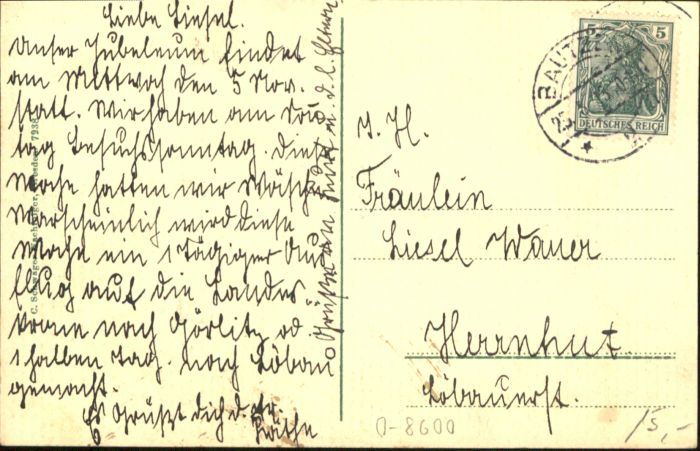 Liebe Liesel.
Unser Jubeleum findet
am Mittwoch den 5 Nov.
statt. Wir haben am Sonn
tag Besuchssonntag. Diese
Woche hatten wir Wäsche
Warscheinlich wird diese
Woche ein 1 Tägiger Aus
flug auf die Landes
krone nach Görlitz od
1 halben Tag. nach Löbau
gemacht.
Es Grüßt dich d.
Käthe
Grüße an
d. l. Eltern
BAUTZEN
DEUTSCHES REICH
5 5
J. H.
Fräulein
Liesel Wauer
Herrnhut
Löbauerst.
D-8600
15,-
7238